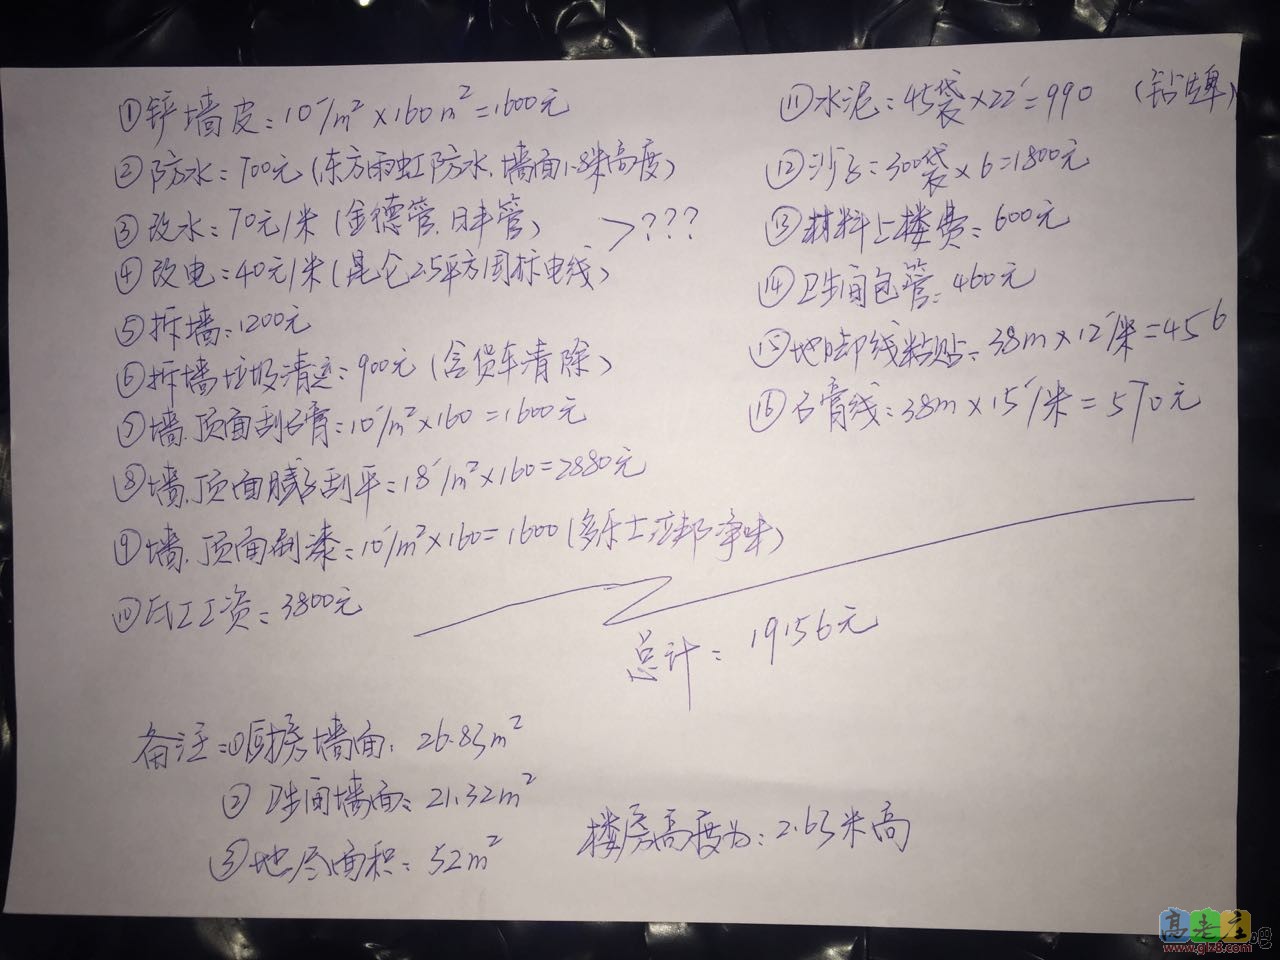 ①铲墙皮:10/m²×160m²=1600元
②防水:700元(东方雨虹防水,墙面1.8米高度)
③改水:70元/米(金德管,日丰管)
>???
④改电:40元/米(昆仑2.5平方国标电线)
⑤拆墙:1200元
⑥拆墙垃圾清运:900元(含货车清除)
⑦墙.顶面刮石膏:10/m²×160=1600元
⑧墙.顶面腻子刮平:18/m²×160=2880元
⑨墙.顶面刷漆:10/m²×160=1600(多乐士 净味)
⑩瓦工工资:3800元
⑪水泥:45袋×22=990 (钻牌)
⑫沙子:300袋×6=1800元
⑬材料上楼费:600元
⑭卫生间包管:460元
⑮地脚线粘贴:38m×12/米=456
⑯石膏线:38m×15/米=570元
总计:19156元
备注:①厨房墙面:26.83m²
②卫生间墙面:21.32m²
③地尽面积:52m²
楼房高度为:2.63米高
高老庄吧
www.glz8.com